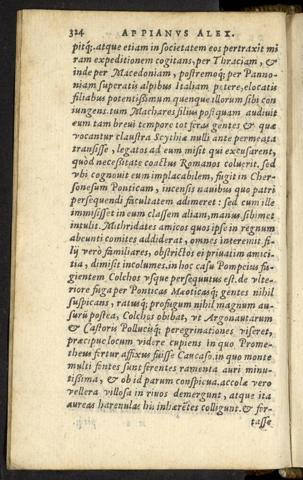 324 APPIANVS ALEX.
pitq́;.atque etiam in societatem eos pertraxit mi
ram expeditionem cogitans, per Thraciam, &
inde per Macedoniam, postremoq́; per Panno-
niam superatis alpibus Italiam petere, elocatis
filiabus potentissimum quenque illorum sibi con
iungens. tum Machares filius postquam audiuit
eum tam breui tempore tot feras gentes & quæ
vocantur claustra Scythiæ nulli ante permeata
transisse, legatos ad eum misit qui excusarent,
quòd necessitate coactus Romanos coluerit. sed
vbi cognouit eum implacabilem, fugit in Cher-
sonesum Ponticam, incensis nauibus quo patri
persequendi facultatem adimeret: sed cum ille
immisisset in eum classem aliam, manus sibimet
intulit. Mithridates amicos quos ipse in regnum
abeunti comites addiderat, omnes interemit. fi-
lij verò familiares, obstrictos ei priuatim amici-
tia, dimisit incolumes. in hoc casu Pompeius fu-
gientem Colchos vsque persequutus est. de vlte-
riore fuga per Ponticas Mæoticasq́; gentes nihil
suspicans, ratusq́; profugum nihil magnum au-
surū postea, Colchos obibat, vt Argonautarum
& Castoris Pollucisq́; peregrinationes viseret,
præcipue locum videre cupiens in quo Prome-
theus fertur affixus fuisse Caucaso. in quo monte
multi fontes sunt ferentes ramenta auri minu-
tissima, & ob id parum conspicua. accolæ vero
vellera villosa in riuos demergunt, atque ita
aureas harenulas his inhærẽtes colligunt. & for-
tasse